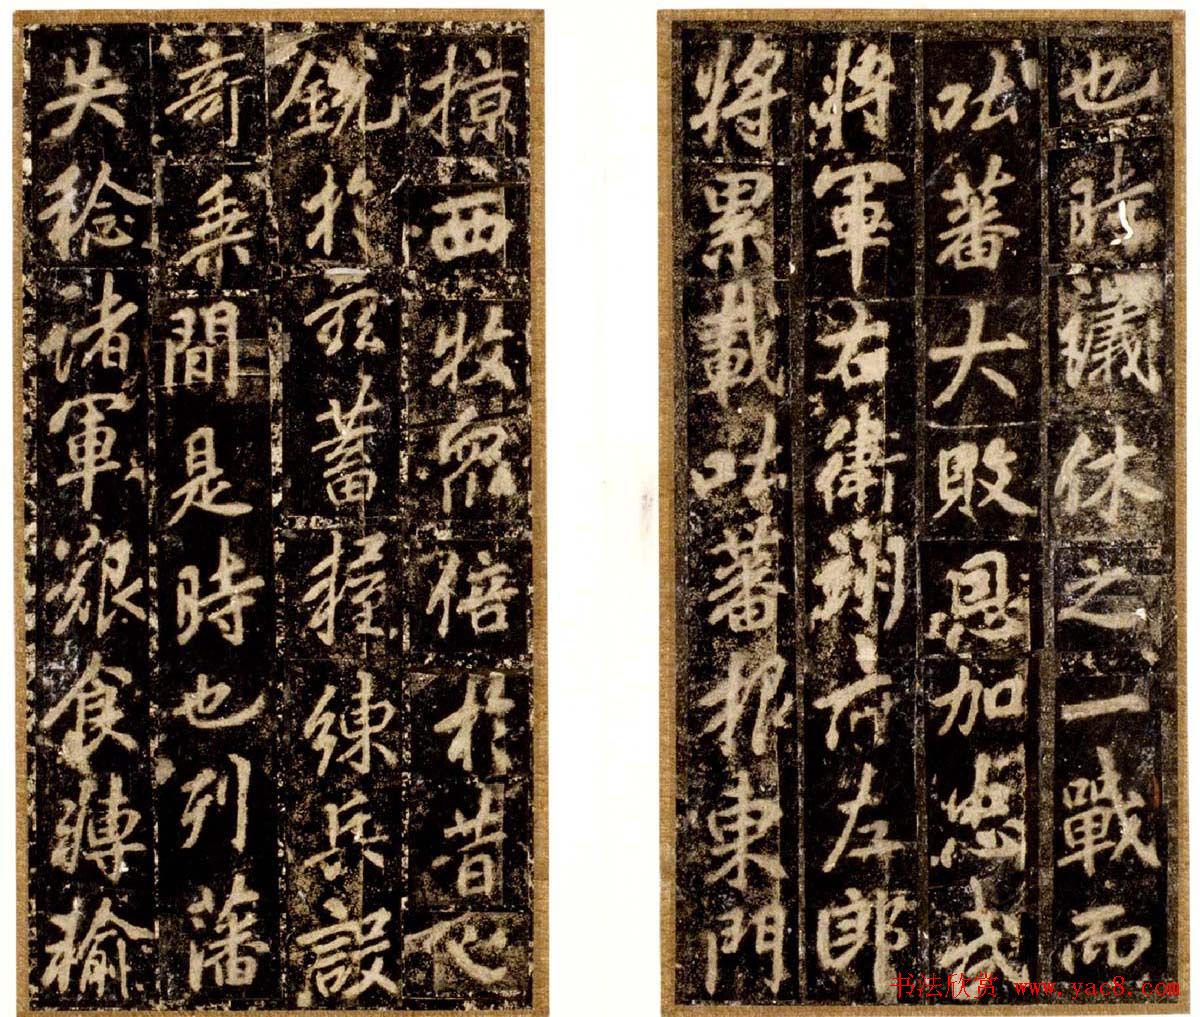 也時議休之一戰而
吐蕃大敗恩加忠武
將軍右衛翊府左郎
將累載吐蕃報東門
掠西牧眾倍於昔心
銳於茲蓄糧練兵設
奇乘間是時也列藩
失稔諸軍艱食轉輸
书法欣赏 www.yac8.com